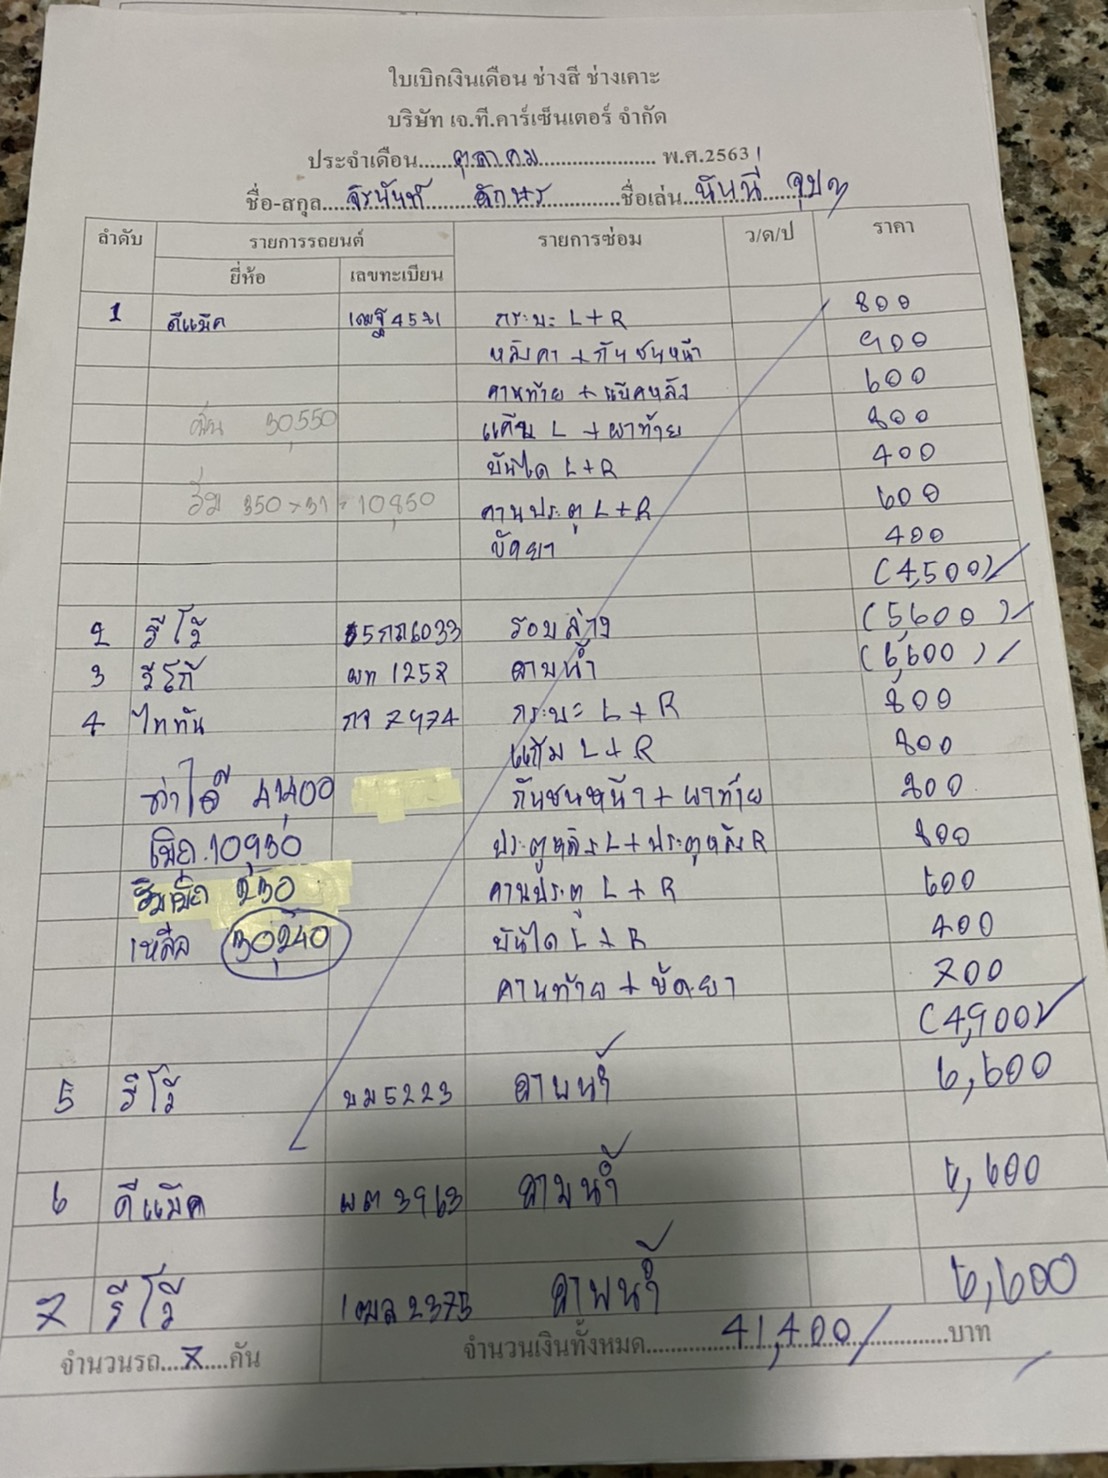 ใบเบิกเงินเดือน ช่างสี ช่างเคาะ
บริษัท เจ.ที.คาร์เซ็นเตอร์ จำกัด
ประจำเดือน......ตุลาคม.................... พ.ศ.2563
ชื่อ-สกุล...จิรนันท์ อักษร............ชื่อเล่น...นันนี่
ลำดับ รายการรถยนต์ รายการซ่อม ว/ด/ป ราคา
ยี่ห้อ เลขทะเบียน
1 ดีแม็ค กระบะ L+R 800
หลังคา + กันชนหน้า 900
คานท้าย + แม็คหลัง 600
30,550 แค๊ป L + ฝาท้าย 800
บันได L+R 400
350 x 31 = 10,850 คานประตู L+R 600
ขัดยา 400
(4,500)
2 รีโว้ 5กถ6033 รอบล่าง (5600)
3 วีโก้ ผท 1258 คาบน้ำ (6,600)
4 ไททัน กจ 7974 กระบะ L+R 800
แก้ม L+R 800
41,400 กันชนหน้า + ฝาท้าย 800
เบิก 10,930 ประตูหลัง L + ประตูหลัง R 800
230 คานประตู L+R 600
เหลือ 30,240 บันได L+R 400
คานท้าย + ขัดยา 700
(4,900)
5 รีโว้ ขม5223 คาบน้ำ 6,600
6 ดีแม็ค ผต 3963 คาบน้ำ 6,600
7 รีโว้ 1ฒล 2375 คาบน้ำ 6,600
จำนวนรถ....7....คัน จำนวนเงินทั้งหมด............41,400............บาท